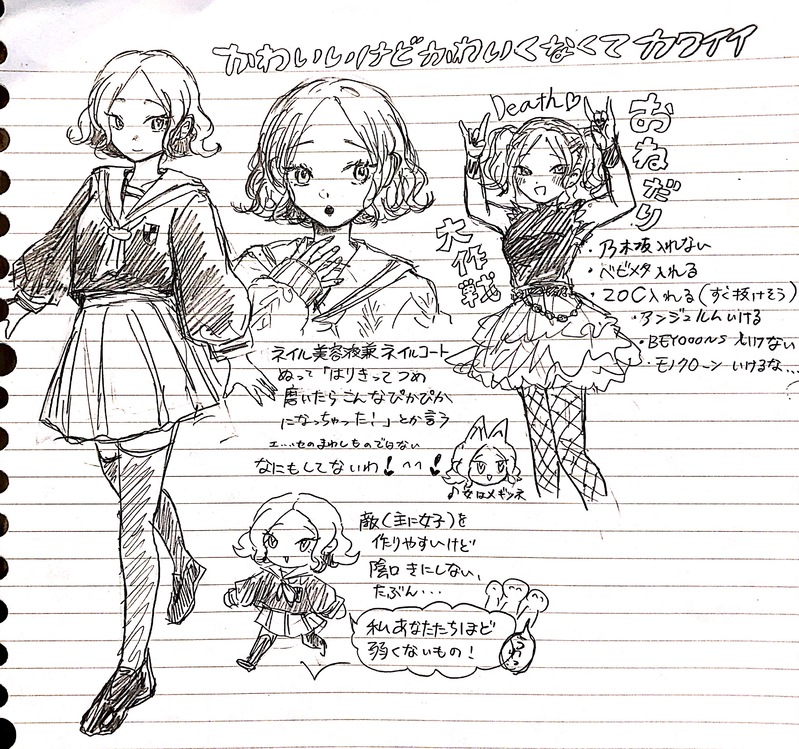 かわいいけどかわいくなくてカワイイ
Death♡
おねだり
大作戦
・乃木坂入れない
・ベビメタ入れる
・ZOC入れる(すぐ抜けそう)
・アンジュルムいける
・BEYOOOONS いけない
・モノクローン いけるな…
ネイル美容液兼ネイルコート
ぬって「はりきってつめ
磨いたらこんなぴかぴか
になっちゃった!」とか言う
のまわしものではない
なにもしてないわ! ^^ !
♪女はメギツネ
敵(主に女子)を
作りやすいけど
陰口 きにしない、
たぶん…
私あなたたちほど
弱くないもの!
うわっ